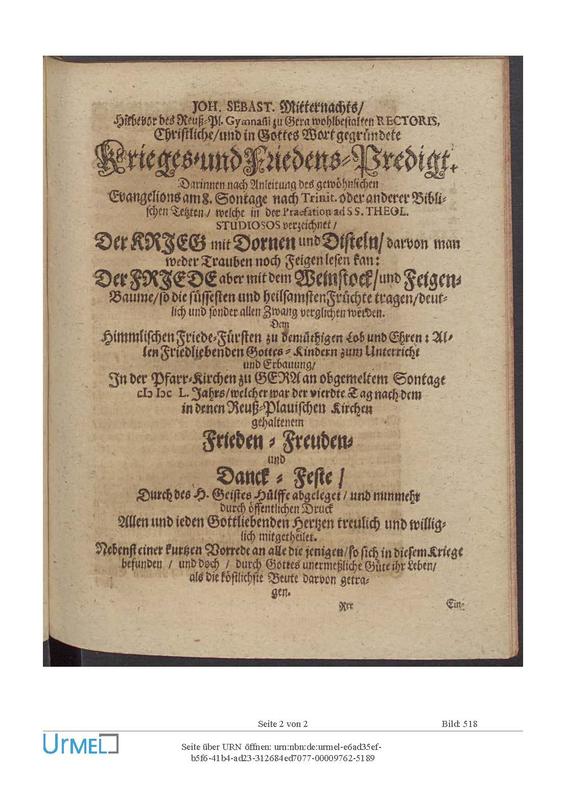 JOH. SEBAST. Mitternachts/
Hiebevor des Reuß-Pl. Gymnasii zu Gera wohlbestalten RECTORIS,
Christliche/und in Gottes Wort gegründete
Krieges-und Friedens-Predigt.
Darinnen nach Anleitung des gewöhnlichen
Evangelions am 8. Sontage nach Trinit. oder anderer Bibli-
schen Texten/ welche in der Praefation ad SS. THEOL.
STUDIOSOS verzeichnet/
Der KRIEG mit Dornen und Disteln/ darvon man
weder Trauben noch Feigen lesen kan:
Der FRIEDE aber mit dem Weinstock/und Feigen-
Baume/so die süssesten und heilsamsten Früchte tragen/deut-
lich und sonder allen Zwang verglichen werden.
Dem
Himmlischen Friede-Fürsten zu demüthigen Lob und Ehren: Al-
len Friedliebenden Gottes-Kindern zum Unterricht
und Erbauung/
In der Pfarr-Kirchen zu GERA an obgemeltem Sontage
cIↃ IↃc L. Jahrs/welcher war der vierdte Tag nach dem
in denen Reuß-Plauischen Kirchen
gehaltenem
Frieden-Freuden-
und
Danck-Feste/
Durch des H. Geistes Hülffe abgeleget/und nunmehr
durch öffentlichen Druck
Allen und ieden Gottliebenden Hertzen treulich und willig-
lich mitgetheilet.
Nebenst einer kurtzen Vorrede an alle die jenigen/so sich in diesem Kriege
befunden/ und doch/ durch Gottes unermeßliche Güte ihr Leben/
als die köstlichste Beute darvon getra-
gen.
Rrr Ein-
Seite 2 von 2 Bild: 518
UrMEL
Seite über URN öffnen: urn:nbn:de:urmel-e6ad35ef-
b5f6-41b4-ad23-312684ed7077-00009762-5189